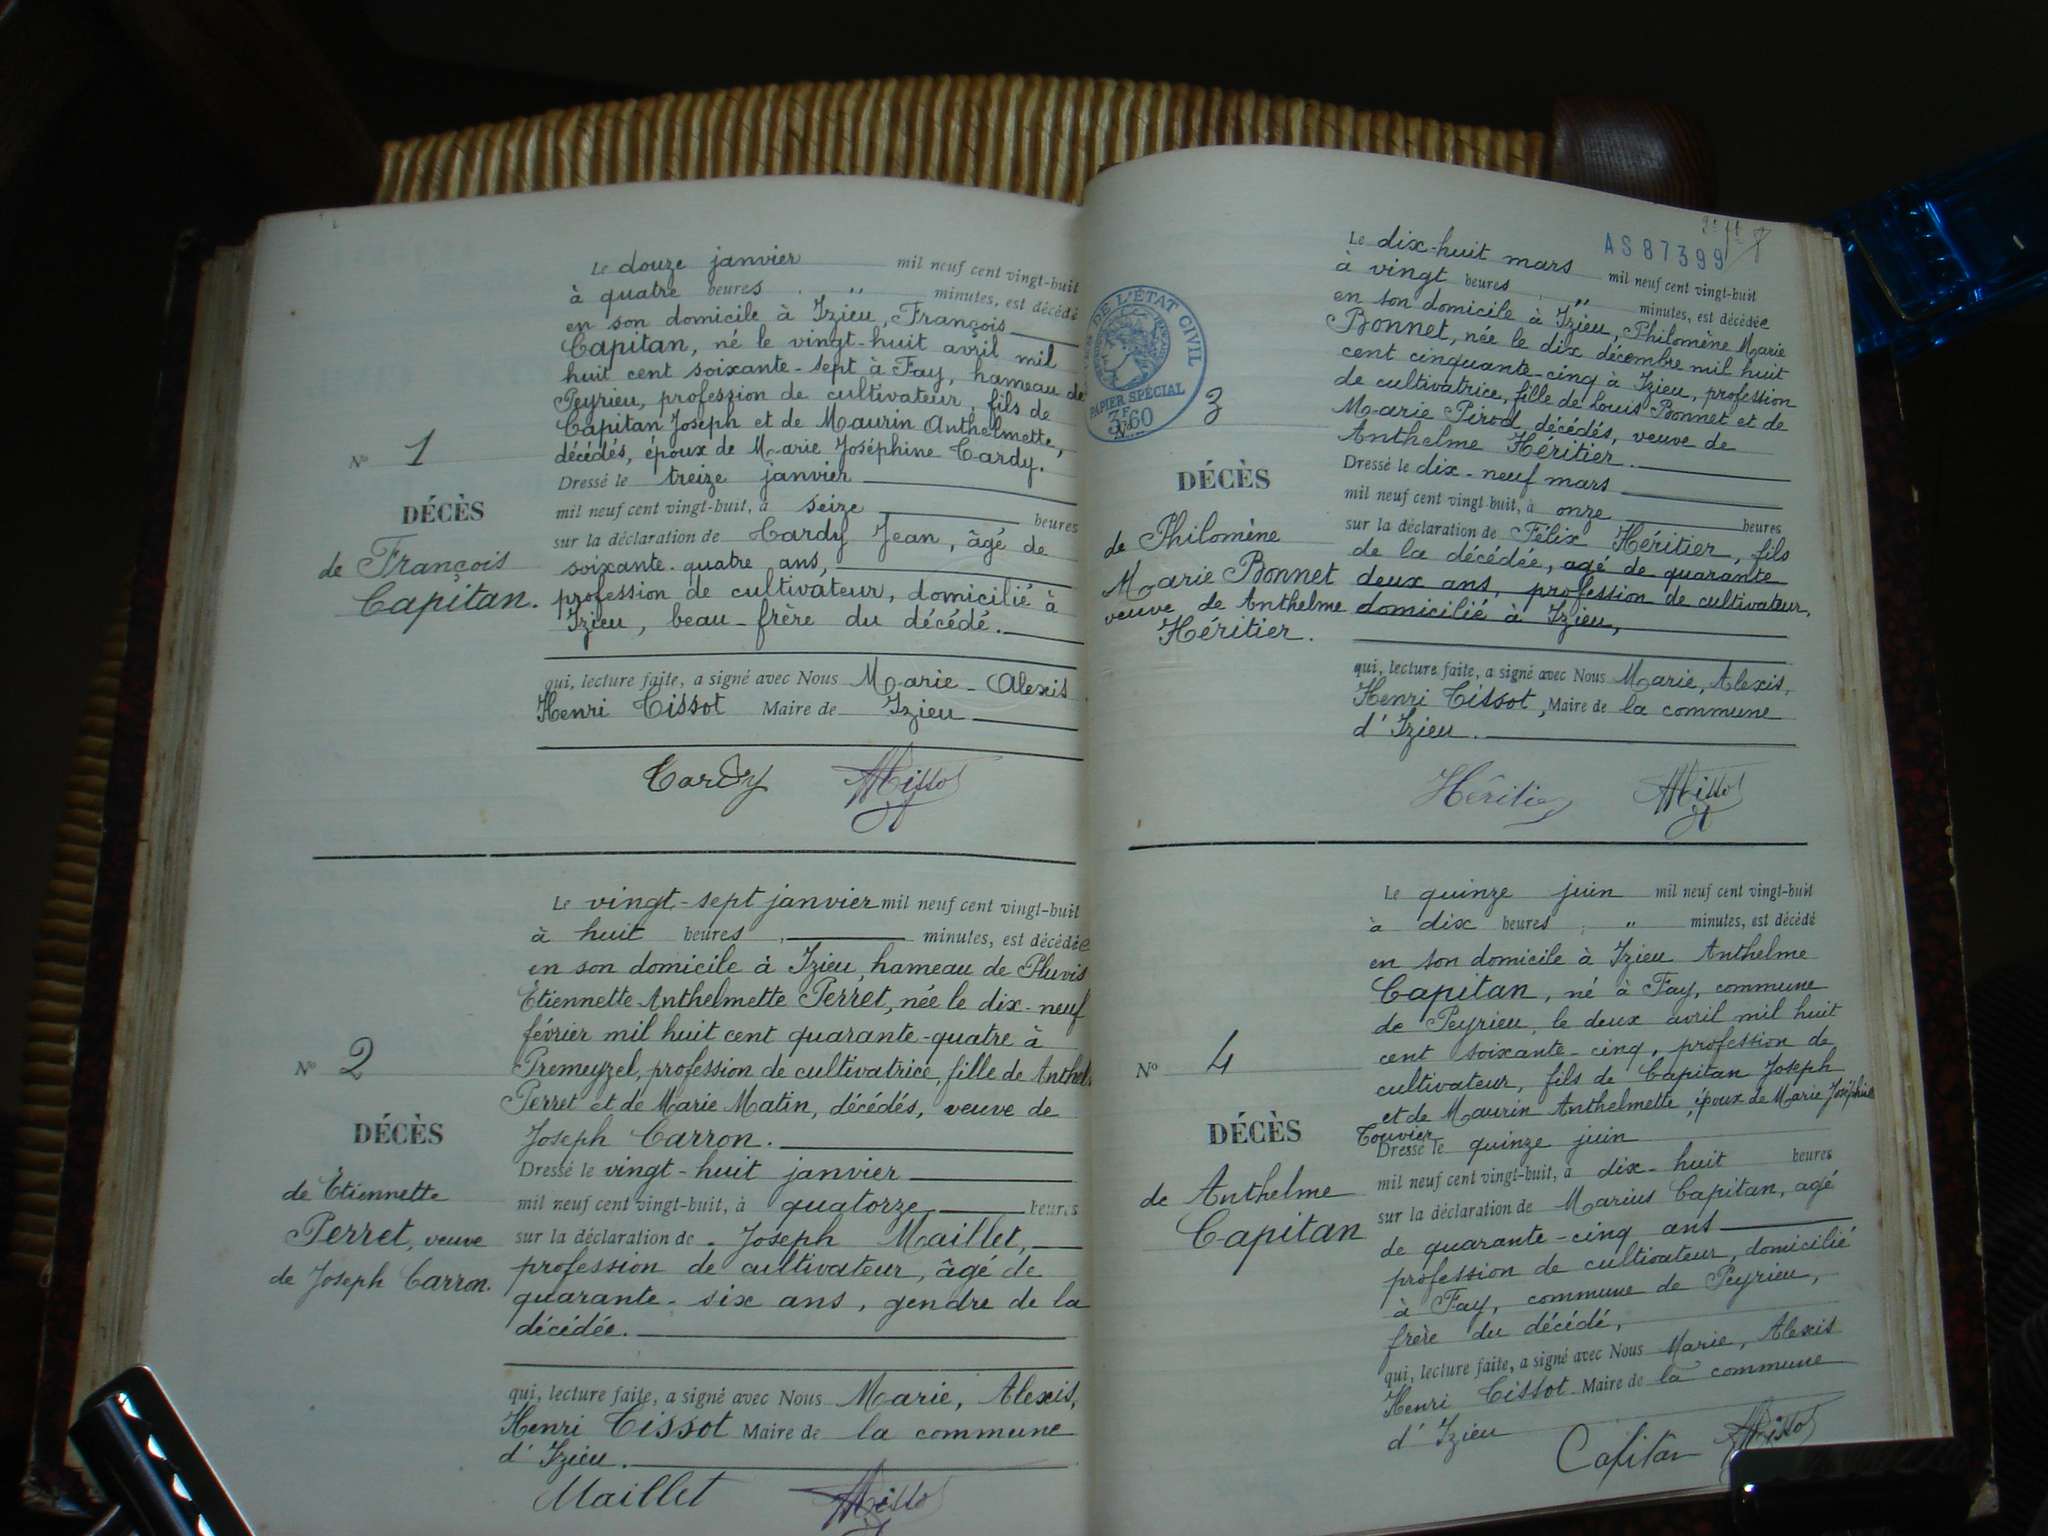 Le douze janvier mil neuf cent vingt-huit
à quatre heures , " minutes, est décédé
en son domicile à Izieu, François
Capitan, né le vingt-huit avril mil
huit cent soixante-sept à Fay, hameau de
Peyrieu, profession de cultivateur, fils de
Capitan Joseph et de Maurin Anthelmette,
décédés, époux de Marie Joséphine Cardy.
Dressé le treize janvier
mil neuf cent vingt-huit, à seize heures
sur la déclaration de Cardy Jean, âgé de
soixante-quatre ans,
profession de cultivateur, domicilié à
Izieu, beau-frère du décédé.
qui, lecture faite, a signé avec Nous Marie-Alexis
Henri Tissot Maire de Izieu
Nº 1
DÉCÈS
de François
Capitan.
Cardy Tissot
Le vingt-sept janvier mil neuf cent vingt-huit
à huit heures , minutes, est décédée
en son domicile à Izieu, hameau de Pluvis
Étiennette Anthelmette Perret, née le dix-neuf
février mil huit cent quarante-quatre à
Premeyzel, profession de cultivatrice, fille de Anthel
Perret et de Marie Matin, décédés, veuve de
Joseph Carron.
Dressé le vingt-huit janvier
mil neuf cent vingt-huit, à quatorze heures
sur la déclaration de Joseph Maillet,
profession de cultivateur, âgé de
quarante-six ans, gendre de la
décédée.
qui, lecture faite, a signé avec Nous Marie, Alexis,
Henri Tissot Maire de la commune
d'Izieu.
Nº 2
DÉCÈS
de Étiennette
Perret, veuve
de Joseph Carron.
Maillet Tissot
AS87399
DE L'ÉTAT CIVIL
PAPIER SPÉCIAL
3F60
Le dix-huit mars mil neuf cent vingt-huit
à vingt heures , " minutes, est décédée
en son domicile à Izieu, Philomène Marie
Bonnet, née le dix décembre mil huit
cent cinquante-cinq à Izieu, profession
de cultivatrice, fille de Louis Bonnet et de
Marie Pirod, décédés, veuve de
Anthelme Héritier.
Dressé le dix-neuf mars
mil neuf cent vingt-huit, à onze heures
sur la déclaration de Félix Héritier, fils
de la décédée, agé de quarante
deux ans, profession de cultivateur,
domicilié à Izieu,
qui, lecture faite, a signé avec Nous Marie, Alexis,
Henri Tissot, Maire de la commune
d'Izieu.
Nº 3
DÉCÈS
de Philomène
Marie Bonnet
veuve de Anthelme
Héritier.
Héritier Tissot
Le quinze juin mil neuf cent vingt-huit
à dix heures , " minutes, est décédé
en son domicile à Izieu Anthelme
Capitan, né à Fay, commune
de Peyrieu, le deux avril mil huit
cent soixante-cinq, profession de
cultivateur, fils de Capitan Joseph
et de Maurin Anthelmette, époux de Marie Joséphine
Touvier
Dressé le quinze juin
mil neuf cent vingt-huit, à dix-huit heures
sur la déclaration de Marius Capitan, agé
de quarante-cinq ans
profession de cultivateur, domicilié
à Fay, commune de Peyrieu,
frère du décédé,
qui, lecture faite, a signé avec Nous Marie, Alexis
Henri Tissot Maire de la commune
d'Izieu
Nº 4
DÉCÈS
de Anthelme
Capitan
Capitan Tissot